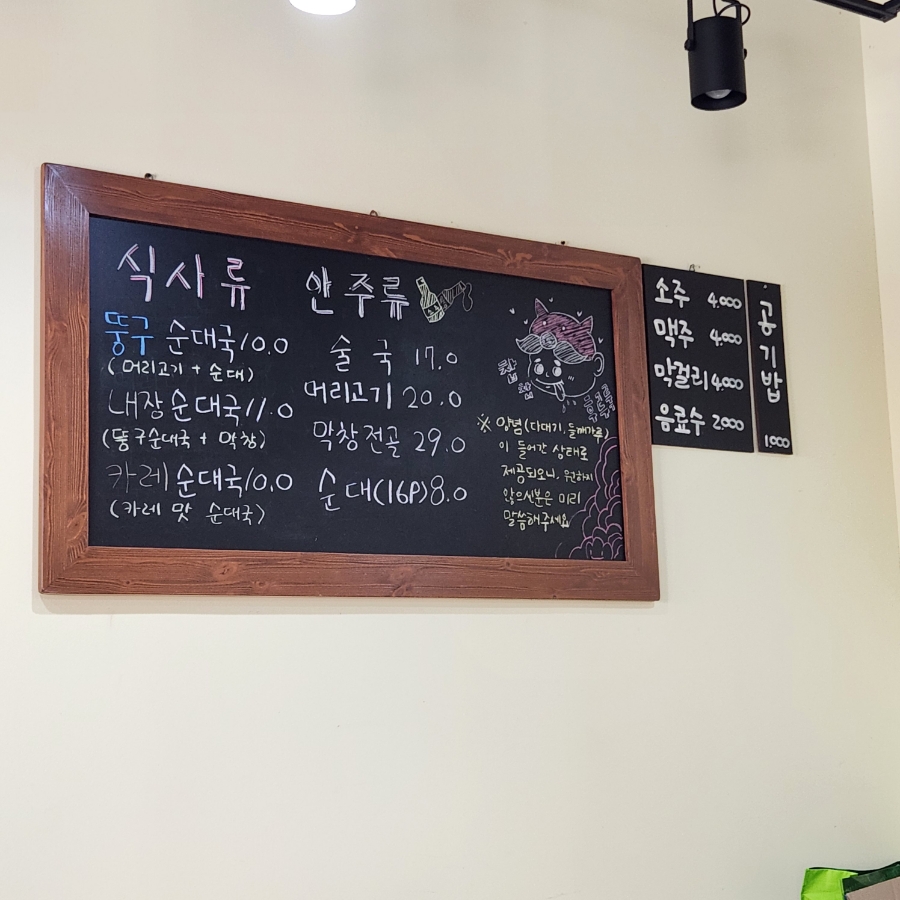 식사류
뚱구 순대국 10.0
(머리고기 + 순대)
내장순대국 11.0
(뚱구순대국 + 막창)
카레 순대국 10.0
(카레 맛 순대국)
안주류
술국 17.0
머리고기 20.0
막창전골 29.0
순대(16P) 8.0
찹찹
※ 양념(다대기, 들깨가루)
이 들어간 상태로
제공되오니, 원하지
않으신분은 미리
말씀해주세요
소주 4.000
맥주 4.000
막걸리 4.000
음료수 2.000
공기밥
1.000